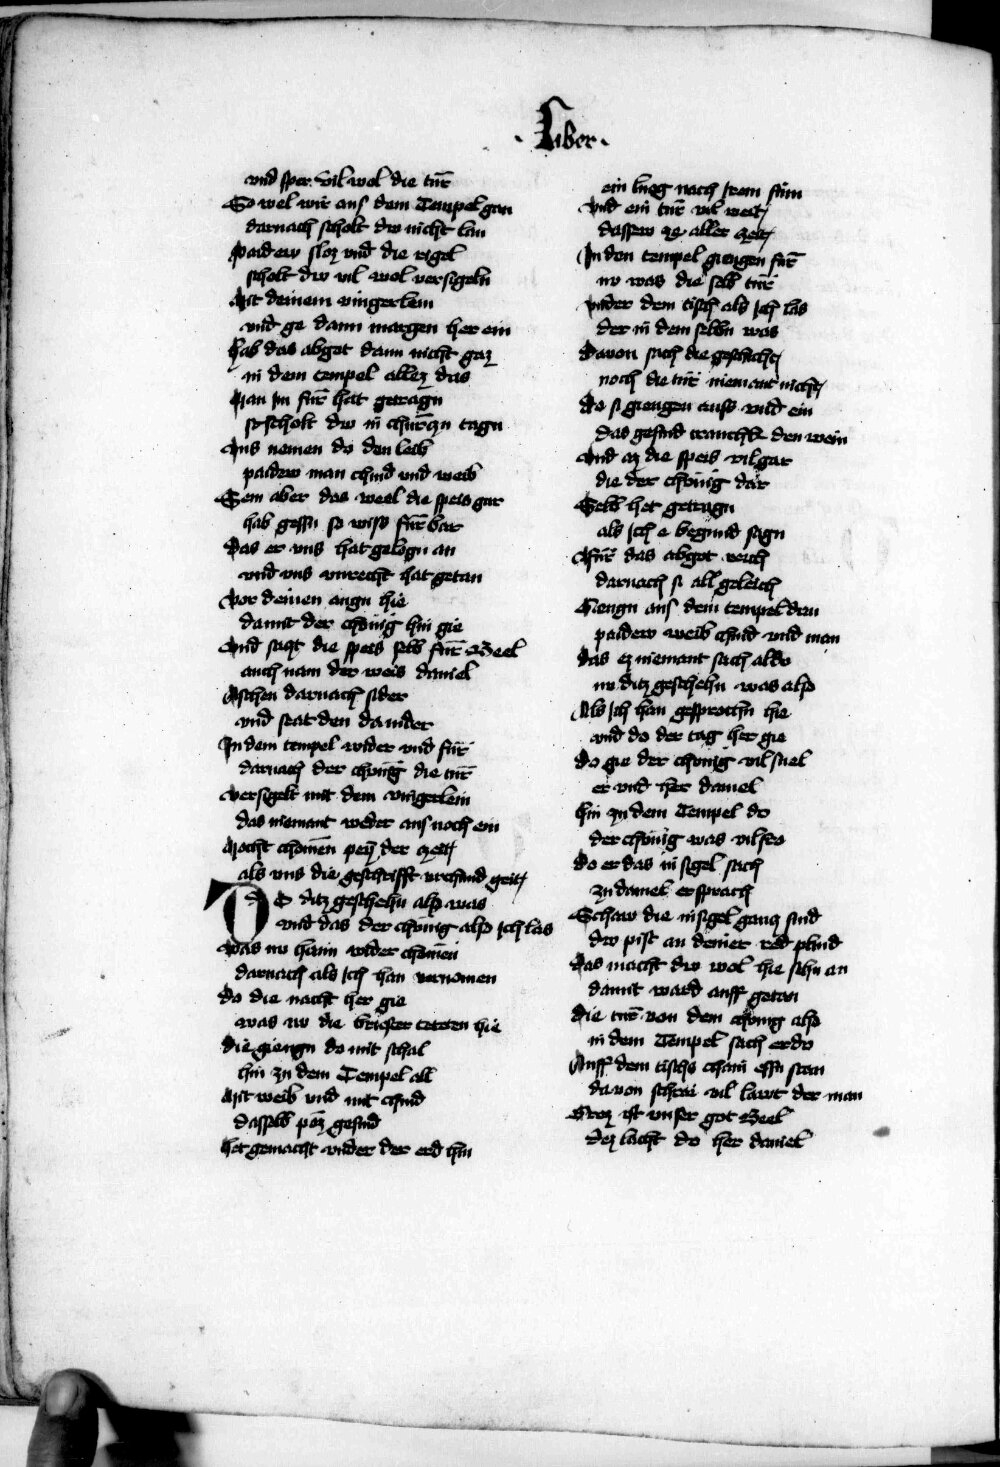 · Liber ·
vnd sper vil wol die tür
So wel wir aus dem Tempel gan
darnach scholt dw nicht lan
paidew sloz vnd die rigel
scholt dw vil wol versigeln
Mit deinem vingerlein
vnd ge dann margen her ein
hab das abgot dann nicht gaz
in dem tempel allez das
Man im für hat getragn
so scholt dw in churczn tagn
Uns nemen do den leib
paidew man chind vnd weib
Sein aber das weel die speis gar
hab gessn so wiss fürbar
das er vns hat gelogn an
vnd vns vnrecht hat getan
vor deinen augn hie
damit der chönig hin gie
Vnd saczt die speis selb für Beel
auch nam der weis daniel
Aschen darnach sider
vnd strat den da nider
In dem tempel wider vnd für
darnach der chönig die tür
versigelt mit dem vingerlein
das niemant weder aus noch ein
Mocht chomen pey der czeit
als vns die geschrifft vrchund geit
DO ditz geschehn also was
vnd das der chönig also ich las
was nw haim wider chomen
darnach als ich han vernomen
do die nacht her gie
was nw die briester teten hie
die giengn do mit schal
hin zu dem Tempel all
Mit weib vnd mit chind
dasselb pöz gesind
het gemacht vnder der erd hin
ein lueg nach irem sinn
Vnd ein tür vil weit
dasserw ze aller zeit
In den tempel giengen für
nw was die selb tür
vnder dem tisch als ich las
der in dem selbn was
dauon sach die geschicht
noch die tür niemant nicht
do si giengen auss vnd ein
das gesind tranchk den wein
Vnd az die speis vil gar
die der chönig dar
Selb het getragn
als ich e begund sagn
für das abgot reich
darnach si all geleich
Giengn aus dem tempel dan
paidew weib chind vnd man
das ez niemant sach aldo
nw ditz geschehn was also
Als ich han gesprochn hie
vnd do der tag her gie
do gie der chönig vil snel
er vnd her daniel
hin zu dem Tempel do
der chönig was vil fro
do er das insigel sach
zu daniel er sprach
Schaw die insigel gancz sind
dw pist an deiner red plind
das macht dw wol hie sehn an
damit ward auff getan
die tür von dem chönig also
in dem Tempel sach er do
Auff dem tischs chain essn stan
dauon schrai vil lawt der man
Groz ist vnser got Beel
dez lacht do her daniel